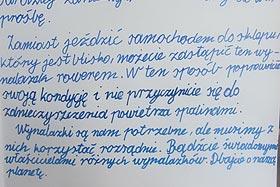 prośbę.
Zamiast jeździć samochodem do sklepu,
który jest blisko, możecie zastąpić ten wy-
nalazek rowerem. W ten sposób poprawicie
swoją kondycję i nie przyczynicie się do
zanieczyszczenia powietrza spalinami.
Wynalazki są nam potrzebne, ale musimy z
nich korzystać rozsądnie. Bądźcie świadomymi
właścicielami różnych wynalazków. Dbajcie o naszą
planetę.